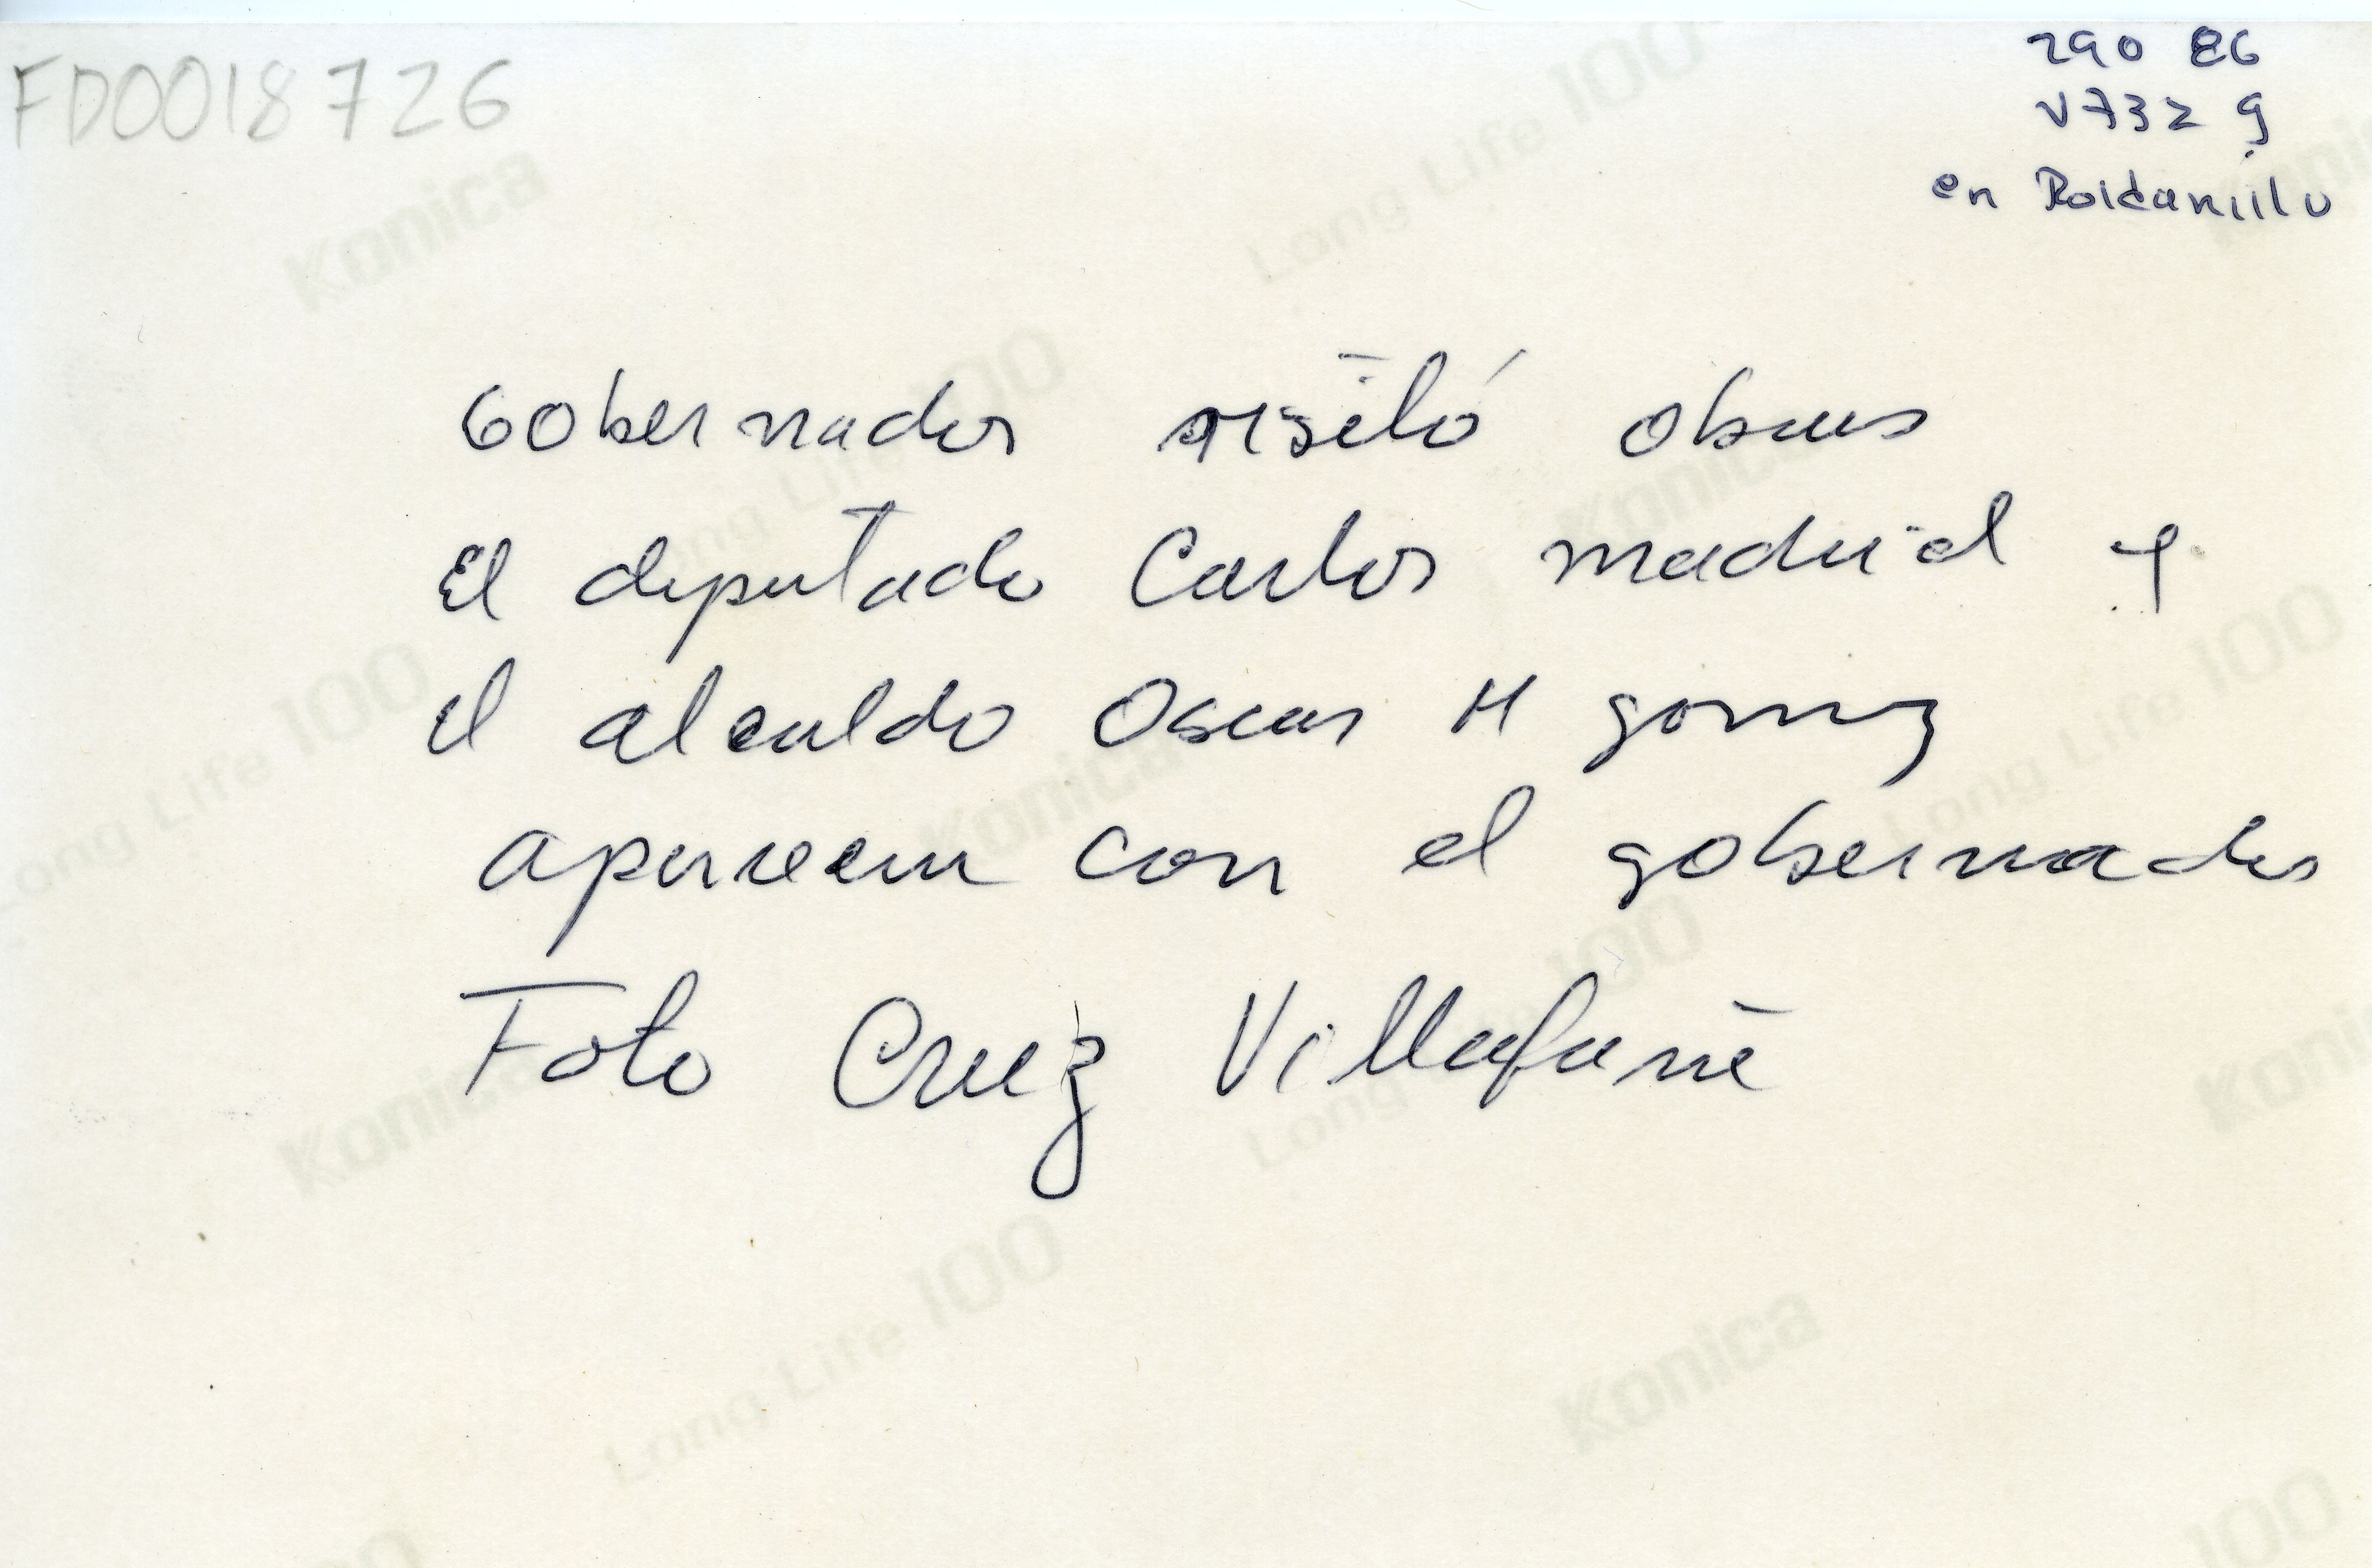 FD0018726
290 86
V732 g
en Roldanillo
Gobernador visitó obras
El diputado Carlos madriel y
el alcalde Oscar H gomez
aparecen con el gobernador
Foto Cruz Villafañe
Konica
Long Life 100